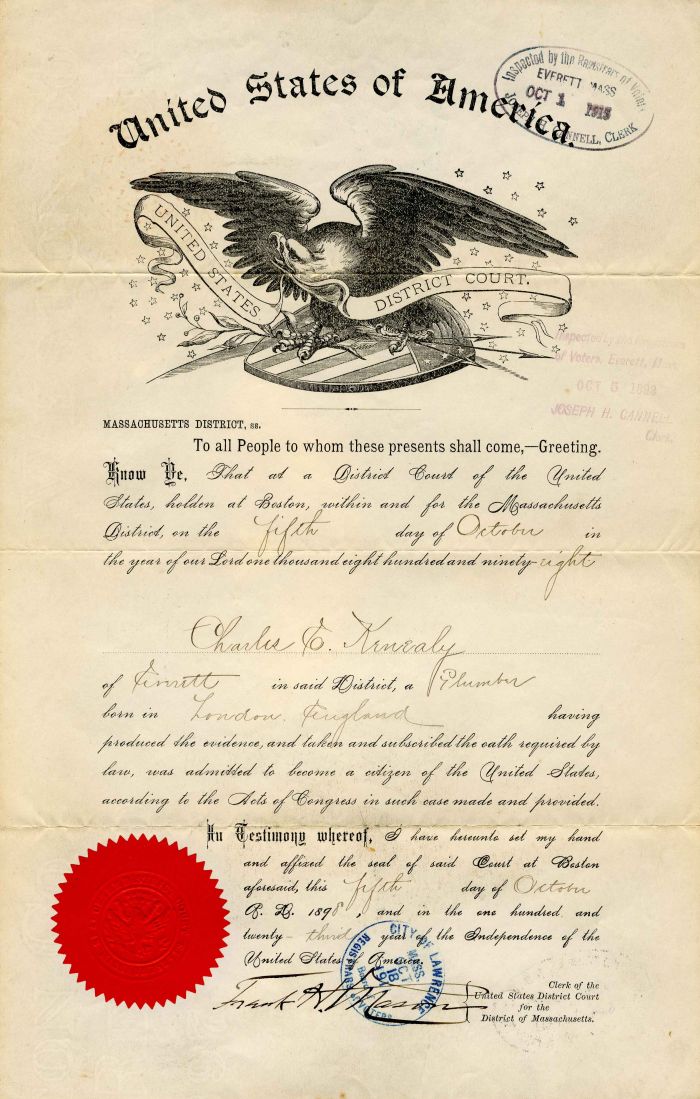 United States of America.
Inspected by the Registrars of Voters
EVERETT MASS
OCT 1 1915
JOSEPH H. CANNELL, CLERK
UNITED STATES
DISTRICT COURT.
Inspected by the Registrars
of Voters, Everett, Mass.
OCT 5 1898
JOSEPH H. CANNELL
Clerk.
MASSACHUSETTS DISTRICT, ss.
To all People to whom these presents shall come,—Greeting.
Know Ye, That at a District Court of the United
States, holden at Boston, within and for the Massachusetts
District, on the fifth day of October in
the year of our Lord one thousand eight hundred and ninety-eight
Charles E. Kenealy
of Everett in said District, a Plumber
born in London, England having
produced the evidence, and taken and subscribed the oath required by
law, was admitted to become a citizen of the United States,
according to the Acts of Congress in such case made and provided.
In Testimony whereof, I have hereunto set my hand
and affixed the seal of said Court at Boston
aforesaid, this fifth day of October
A. D. 1898, and in the one hundred and
twenty-third year of the Independence of the
United States of America.
CITY OF LAWRENCE
MASS.
OCT
18
REGISTRARS OF VOTERS
Frank H. Mason
Clerk of the
United States District Court
for the
District of Massachusetts.